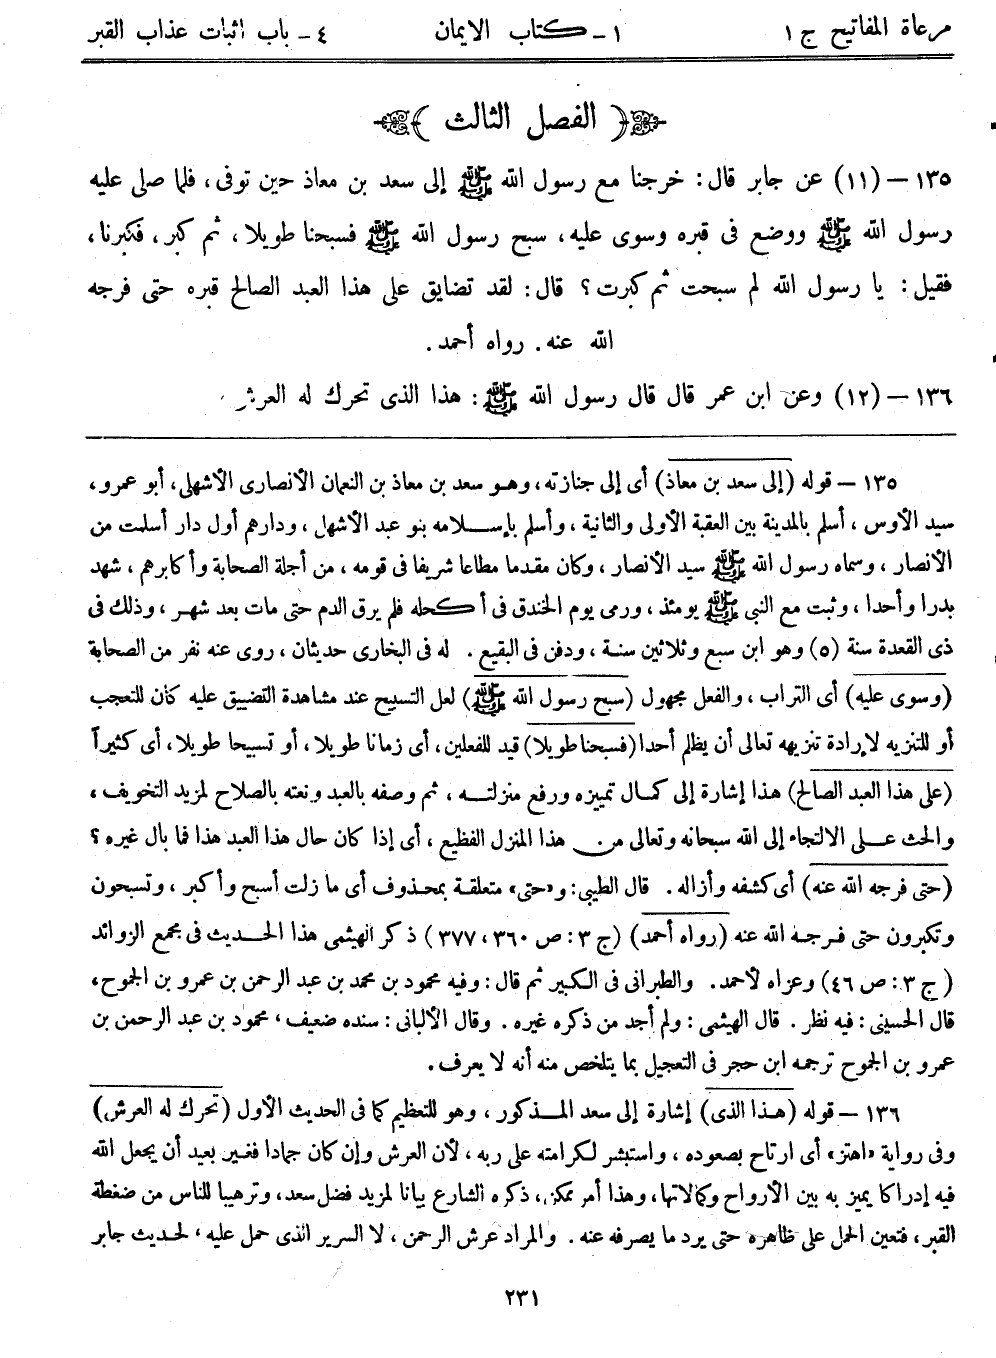 مرعاة المفاتيح ج ١ ١ - كتاب الايمان ٤ - باب اثبات عذاب القبر
﴿ الفصل الثالث ﴾
١٣٥ – (١١) عن جابر قال: خرجنا مع رسول الله ﷺ إلى سعد بن معاذ حين توفى، فلما صلى عليه
رسول الله ﷺ ووضع فى قبره وسوى عليه، سبح رسول الله ﷺ فسبحنا طويلا، ثم كبر، فكبرنا،
فقيل: يا رسول الله لم سبحت ثم كبرت؟ قال: لقد تضايق على هذا العبد الصالح قبره حتى فرجه
الله عنه. رواه أحمد.
١٣٦ – (١٢) وعن ابن عمر قال قال رسول الله ﷺ: هذا الذى تحرك له العرش،
١٣٥ – قوله (إلى سعد بن معاذ) أى إلى جنازته، وهو سعد بن معاذ بن النعمان الأنصارى الأشهلى، أبو عمرو،
سيد الأوس، أسلم بالمدينة بين العقبة الأولى والثانية، وأسلم بإسلامه بنو عبد الأشهل، ودارهم أول دار أسلمت من
الأنصار، وسماه رسول الله ﷺ سيد الأنصار، وكان مقدما مطاعا شريفا فى قومه، من أجلة الصحابة وأكابرهم، شهد
بدرا وأحدا، وثبت مع النبى ﷺ يومئذ، ورمى يوم الخندق فى أكحله فلم يرق الدم حتى مات بعد شهر، وذلك فى
ذى القعدة سنة (٥) وهو ابن سبع وثلاثين سنة، ودفن فى البقيع. له فى البخارى حديثان، روى عنه نفر من الصحابة
(وسوى عليه) أى التراب، والفعل مجهول (سبح رسول الله ﷺ) لعل التسبيح عند مشاهدة التضييق عليه كان للتعجب
أو للتنزيه لإرادة تنزيهه تعالى أن يظلم أحدا (فسبحنا طويلا) قيد للفعلين، أى زمانا طويلا، أو تسبيحا طويلا، أى كثيراً
(على هذا العبد الصالح) هذا إشارة إلى كمال تمييزه ورفع منزلته، ثم وصفه بالعبد ونعته بالصلاح لمزيد التخويف،
والحث على الالتجاء إلى الله سبحانه وتعالى من هذا المنزل الفظيع، أى إذا كان حال هذا العبد هذا فما بال غيره؟
(حتى فرجه الله عنه) أى كشفه وأزاله. قال الطيبى: و«حتى» متعلقة بمحذوف أى ما زلت أسبح وأكبر، وتسبحون
وتكبرون حتى فرجه الله عنه (رواه أحمد) (ج ٣: ص ٣٦٠، ٣٧٧) ذكر الهيثمى هذا الحديث فى مجمع الزوائد
(ج ٣: ص ٤٦) وعزاه لأحمد. والطبرانى فى الكبير ثم قال: وفيه محمود بن محمد بن عبد الرحمن بن عمرو بن الجموح،
قال الحسينى: فيه نظر. قال الهيثمى: ولم أجد من ذكره غيره. وقال الألبانى: سنده ضعيف، محمود بن عبد الرحمن بن
عمرو بن الجموح ترجمه ابن حجر فى التعجيل بما يتلخص منه أنه لا يعرف.
١٣٦ – قوله (هذا الذى) إشارة إلى سعد المذكور، وهو للتعظيم كما فى الحديث الأول (تحرك له العرش)
وفى رواية «اهتز» أى ارتاح بصعوده، واستبشر لكرامته على ربه، لأن العرش وإن كان جمادا فغير بعيد أن يجعل الله
فيه إدراكا يميز به بين الأرواح وكمالاتها، وهذا أمر ممكن، ذكره الشارع بيانا لمزيد فضل سعد، وترهيبا للناس من ضغطة
القبر، فتعين الحمل على ظاهره حتى يرد ما يصرفه عنه. والمراد عرش الرحمن، لا السرير الذى حمل عليه، لحديث جابر
٢٣١